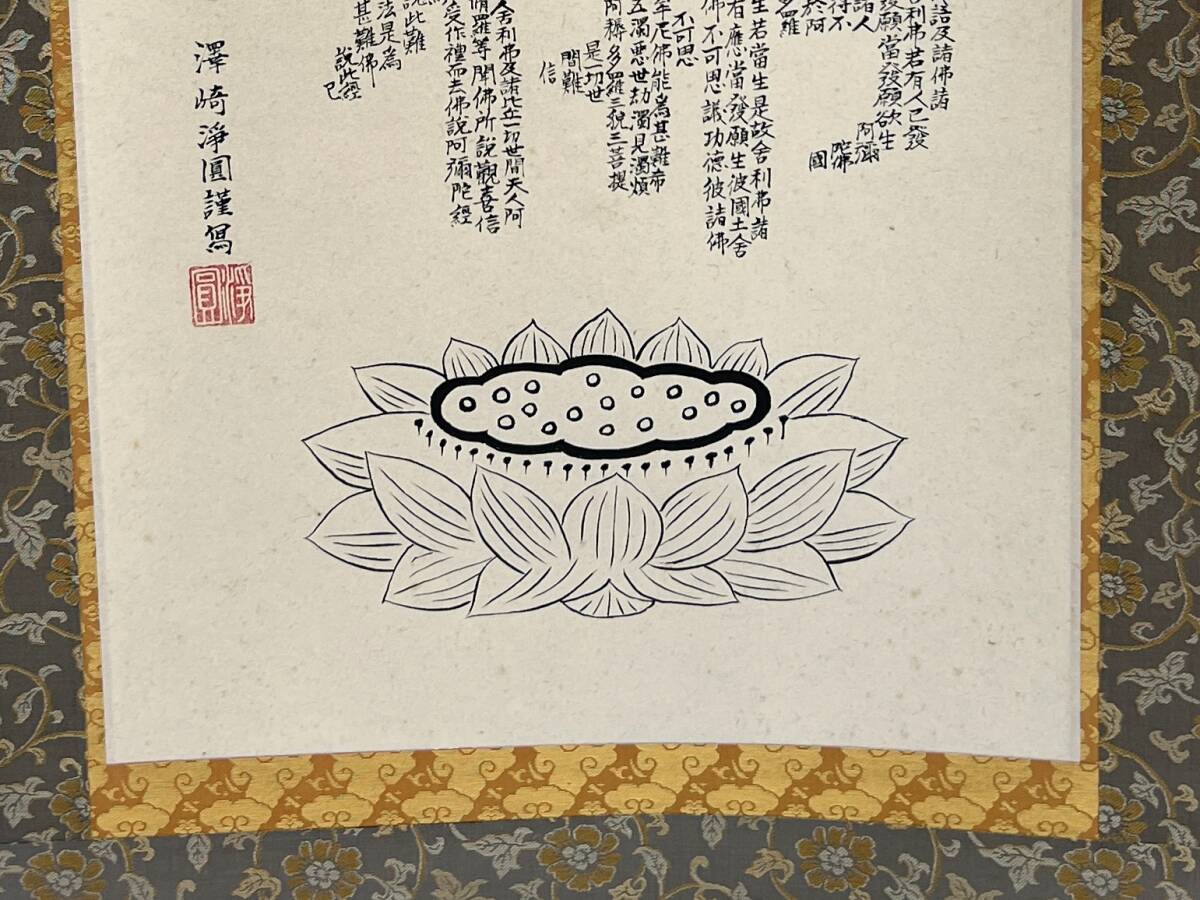 語及諸佛諸
利弗若有人已發
發願當發願欲生
諸人
阿彌
得不
陀佛
於阿
國
多羅
生若當生是故舍利弗諸
有應當發願生彼國土舍
佛不可思議功德彼諸佛
不可思
牟尼佛能為甚難希
五濁惡世劫濁見濁煩
阿耨多羅三藐三菩提
是一切世
間難
信
舍利弗及諸比丘一切世間天人阿
脩羅等聞佛所說歡喜信
受作禮而去佛說阿彌陀經
說此難
法是為
甚難佛
說此經
已
澤崎淨圓謹寫
淨圓